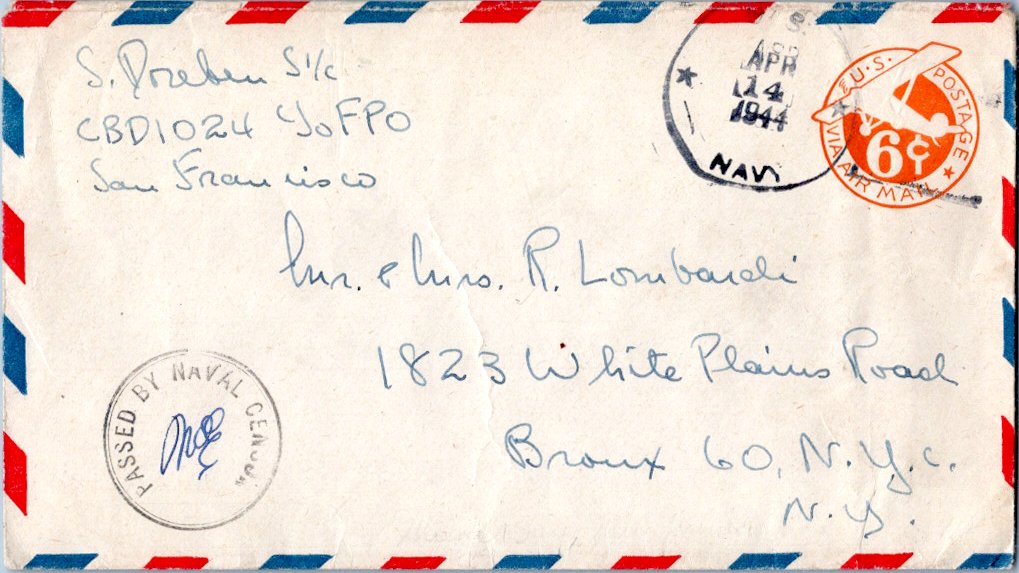 S. Dreben S1/c
CBD1024 c/o FPO
San Francisco
U.S.
APR
14
1944
NAVY
U.S. POSTAGE
6¢
VIA AIR MAIL
Mr. & Mrs. R. Lombardi
1823 White Plains Road
Bronx 60, N.Y.C.
N.Y.
PASSED BY NAVAL CENSOR